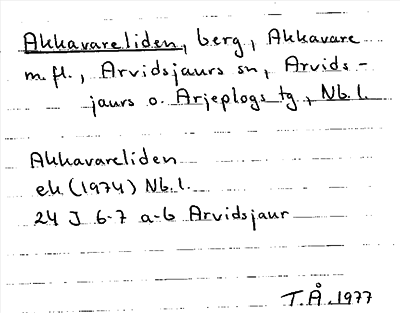 Akkavareliden, berg, Akkavare
m.fl., Arvidsjaurs sn, Arvids-
jaurs o. Arjeplogs tg, Nb.l.
Akkavareliden
ek (1974) Nb.l.
24 J 6-7 a-b Arvidsjaur
T.Å. 1977